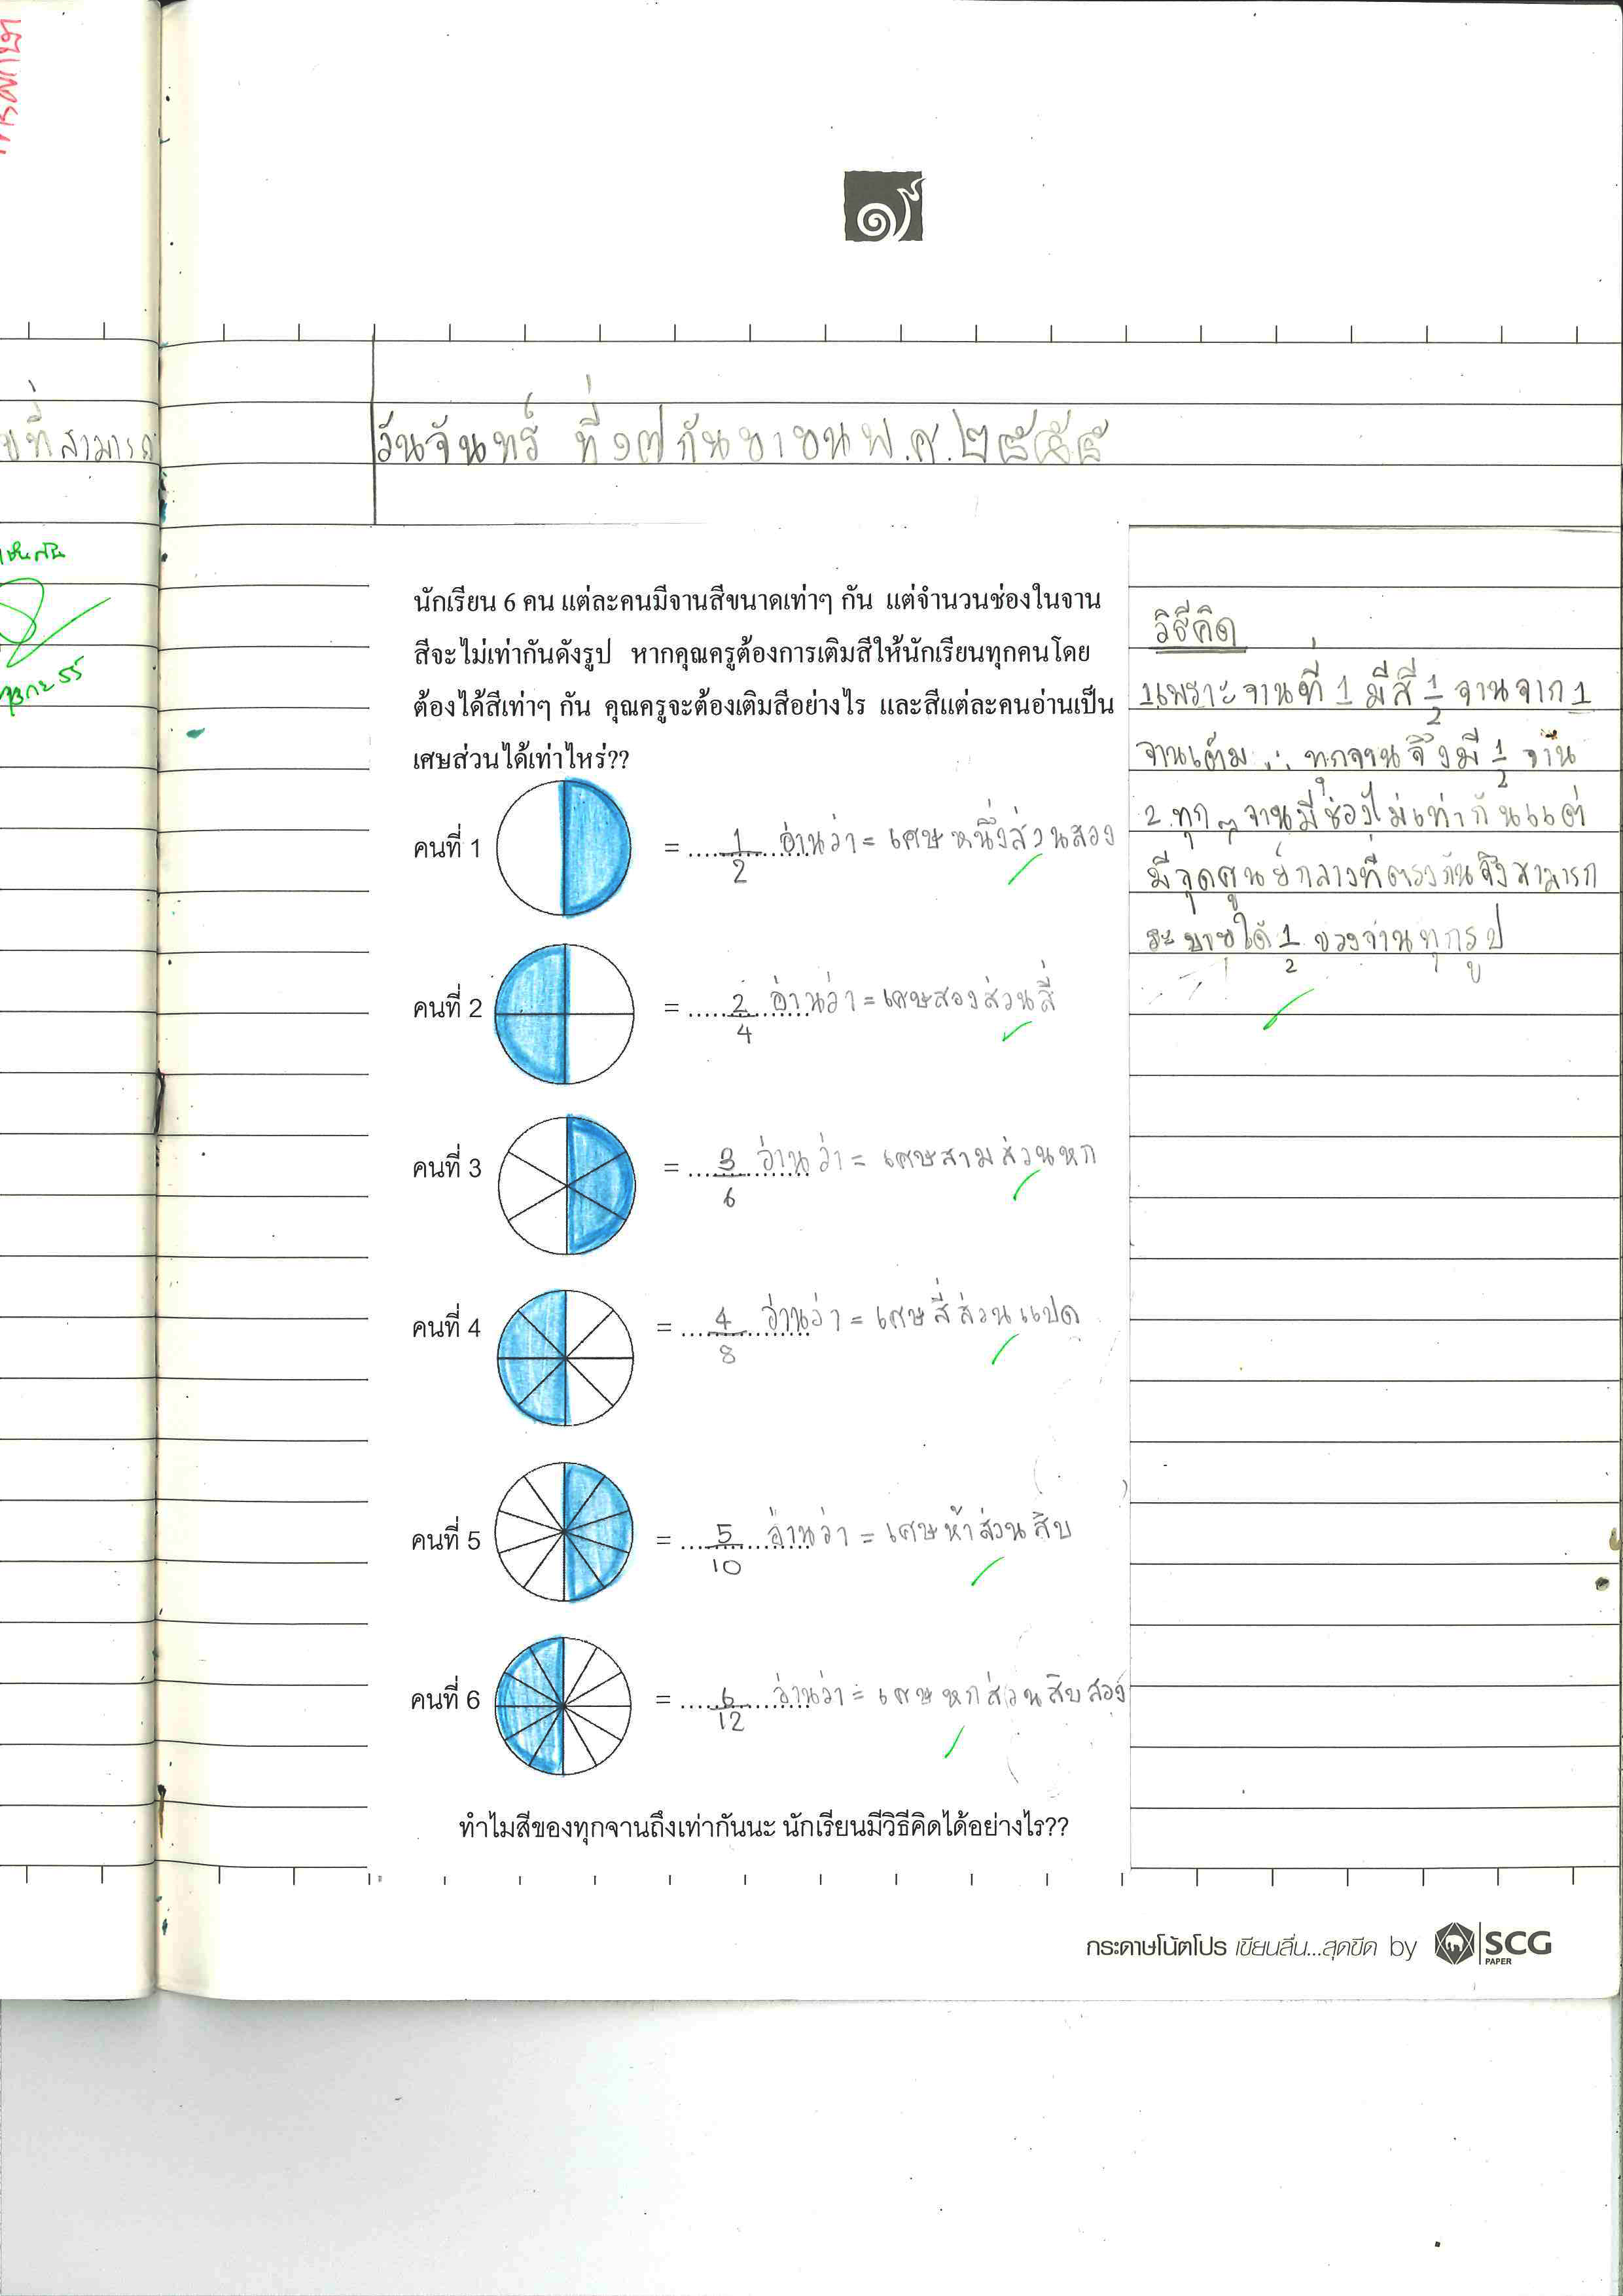 ที่สามารถ
วันจันทร์ ที่๑๗กันยายนพ.ศ.๒๕๕๕
นักเรียน 6 คน แต่ละคนมีจานสีขนาดเท่าๆ กัน แต่จำนวนช่องในจาน
สีจะไม่เท่ากันดังรูป หากคุณครูต้องการเติมสีให้นักเรียนทุกคนโดย
ต้องได้สีเท่าๆ กัน คุณครูจะต้องเติมสีอย่างไร และสีแต่ละคนอ่านเป็น
เศษส่วนได้เท่าไหร่??
คนที่ 1 = 1/2 อ่านว่า = เศษหนึ่งส่วนสอง
คนที่ 2 = 2/4 อ่านว่า = เศษสองส่วนสี่
คนที่ 3 = 3/6 อ่านว่า = เศษสามส่วนหก
คนที่ 4 = 4/8 อ่านว่า = เศษสี่ส่วนแปด
คนที่ 5 = 5/10 อ่านว่า = เศษห้าส่วนสิบ
คนที่ 6 = 6/12 อ่านว่า = เศษหกส่วนสิบสอง
ทำไมสีของทุกจานถึงเท่ากันนะ นักเรียนมีวิธีคิดได้อย่างไร??
วิธีคิด
1เพราะจานที่ 1 มีสี 1/2 จานจาก 1
จานเต็ม ∴ ทุกจานจึงมี 1/2 จาน
2.ทุกๆจานมีช่องไม่เท่ากันแต่
มีจุดศูนย์กลางที่ตรงกันจึงสามารถ
ระบายได้ 1/2 ของจานทุกรูป
กระดาษโน้ตโปร เขียนลื่น...สุดขีด by SCG
PAPER